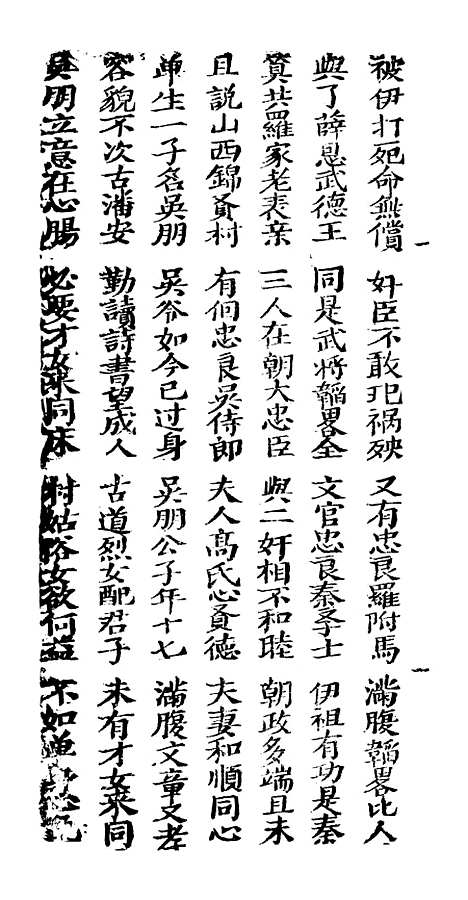 被伊打死命無償 奸臣不敢犯禍殃 又有忠良羅附馬 滿腹韜畧比人
與了薛恩武德王 同是武將韜畧全 文官忠良秦孝士 伊祖有功是秦
筧共羅家老表亲 三人在朝大忠臣 與二奸相不和睦 朝政多端且未
且説山西錦賢村 有個忠良吴侍郎 夫人高氏心賢德 夫妻和順同心
单生一子名吳朋 吴爷如今已过身 吴朋公子年十七 滿腹文章又孝
容貌不次古潘安 勤讀詩書望成人 古道烈女配君子 未有才女來同
吳朋立意在心腸 必要才女來同床 村姑俗女教何益 不如单